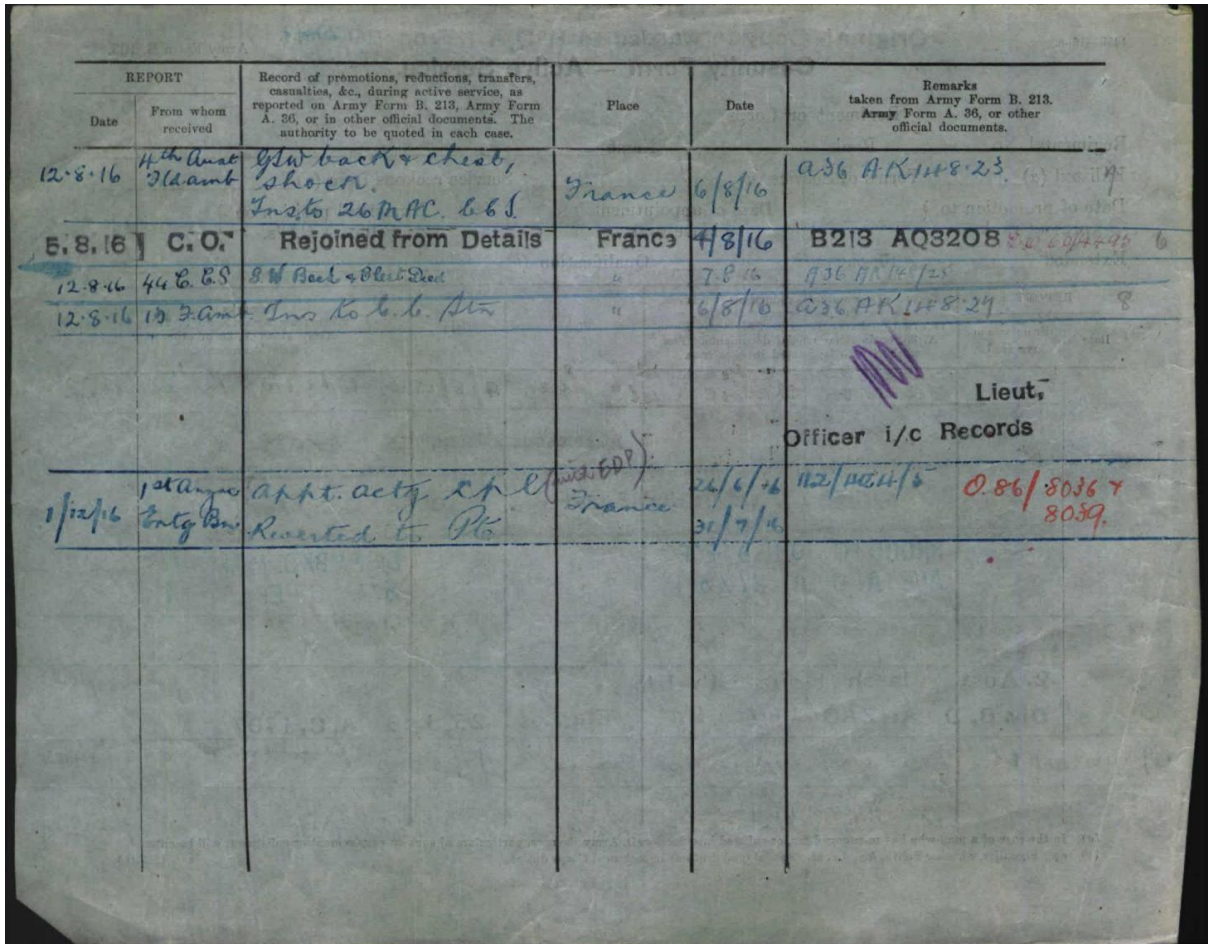 REPORT
Date
From whom received
Record of promotions, reductions, transfers,
casualties, &c., during active service, as
reported on Army Form B. 213, Army Form
A. 36, or in other official documents. The
authority to be quoted in each case.
Place
Date
Remarks
taken from Army Form B. 213.
Army Form A. 36, or other
official documents.
12·8·16 4th Aust GSW back & chest, a36 AK1148·23
Fld amb shock. France 6/8/16
Tns to 26 MAC. CCS.
5.8.16 C.O. Rejoined from Details France 4/8/16 B213 AQ3208 6
12·8·16 44 C.C.S S.W Back & Chest Died " 7·8·16 A36
12·8·16 13 F.Amb. Tns to C.C. Stn " 6/8/16 a36 AK1148·24 8
Lieut,
Officer i/c Records
1st Anzac appt. actg cpl (with EDP). 0.86/8036 &
1/12/16 Entg Bn France 8039.
Reverted to Pte 31/7/16